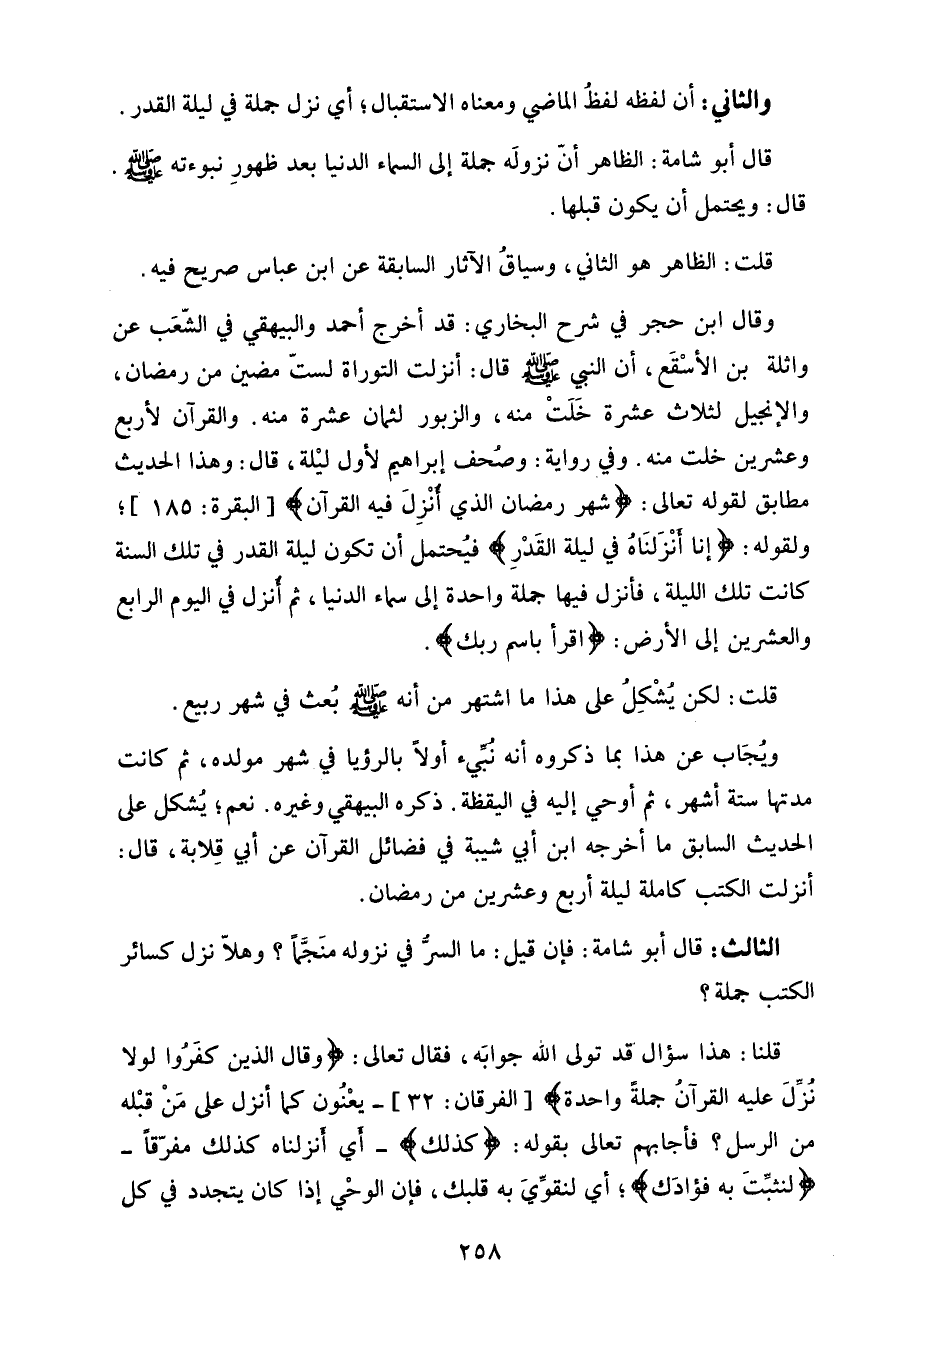 والثاني: أن لفظه لفظُ الماضي ومعناه الاستقبال؛ أي نزل جملة في ليلة القدر.
قال أبو شامة: الظاهر أنّ نزولَه جملة إلى السماء الدنيا بعد ظهورِ نبوءته ﷺ.
قال: ويحتمل أن يكون قبلها.
قلت: الظاهر هو الثاني، وسياقُ الآثار السابقة عن ابن عباس صريح فيه.
وقال ابن حجر في شرح البخاري: قد أخرج أحمد والبيهقي في الشّعَب عن
واثلة بن الأسْقَع، أن النبي ﷺ قال: أنزلت التوراة لستّ مضين من رمضان،
والإنجيل لثلاث عشرة خَلَتْ منه، والزبور لثمان عشرة منه. والقرآن لأربع
وعشرين خلت منه. وفي رواية: وصُحف إبراهيم لأول ليْلة، قال: وهذا الحديث
مطابق لقوله تعالى: ﴿شهر رمضان الذي أُنْزِلَ فيه القرآن﴾ [البقرة: ١٨٥]؛
ولقوله: ﴿إنا أَنْزَلنَاهُ في ليلة القَدْرِ﴾ فيُحتمل أن تكون ليلة القدر في تلك السنة
كانت تلك الليلة، فأنزل فيها جملة واحدة إلى سماء الدنيا، ثم أُنزل في اليوم الرابع
والعشرين إلى الأرض: ﴿اقرأ باسم ربك﴾.
قلت: لكن يُشْكِلُ على هذا ما اشتهر من أنه ﷺ بُعث في شهر ربيع.
ويُجَاب عن هذا بما ذكروه أنه نُبِّيء أولاً بالرؤيا في شهر مولده، ثم كانت
مدتها ستة أشهر، ثم أوحي إليه في اليقظة. ذكره البيهقي وغيره. نعم؛ يُشكل على
الحديث السابق ما أخرجه ابن أبي شيبة في فضائل القرآن عن أبي قِلابة، قال:
أنزلت الكتب كاملة ليلة أربع وعشرين من رمضان.
الثالث: قال أبو شامة: فإن قيل: ما السرُّ في نزوله منَجَّماً؟ وهلاّ نزل كسائر
الكتب جملة؟
قلنا: هذا سؤال قد تولى الله جوابَه، فقال تعالى: ﴿وقال الذين كفَرُوا لولا
نُزِّلَ عليه القرآنُ جملةً واحدة﴾ [الفرقان: ٣٢] ـ يعْنُون كما أنزل على مَنْ قبْله
من الرسل؟ فأجابهم تعالى بقوله: ﴿كذلك﴾ ـ أَي أَنزلناه كذلك مفرّقاً ـ
﴿لنثبِّتَ به فؤادَك﴾؛ أي لنقوِّيَ به قلبك، فإن الوحْي إذا كان يتجدد في كل
٢٥٨